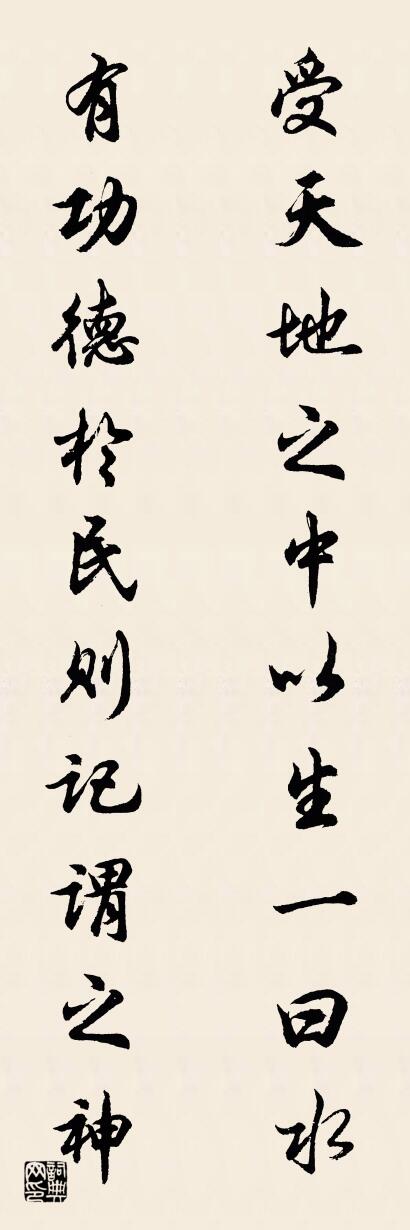 受天地之中以生一曰水
有功德於民則記謂之神
詞典網印